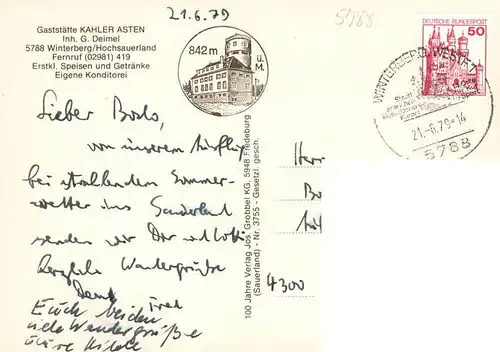 21.6.79
5988
Gaststätte KAHLER ASTEN
Inh. G. Deimel
5788 Winterberg/Hochsauerland
Fernruf (02981) 419
Erstkl. Speisen und Getränke
Eigene Konditorei
842 m
ü.
M.
DEUTSCHE BUNDESPOST
50
WINTERBERG, WESTF
21.-6.79-14
5788
Lieber Bodo,
von unserem Ausflug
bei strahlendem Sommer-
wetter ins Sauerland
senden wir Dir
herzliche Wandergrüße
Fred
Euch beiden
viele Wandergrüße
Eure Hilde
100 Jahre Verlag Jos. Grobbel KG, 5948 Fredeburg
(Sauerland) - Nr. 3755 - Gesetzl. gesch.
Herr
Bo
4300